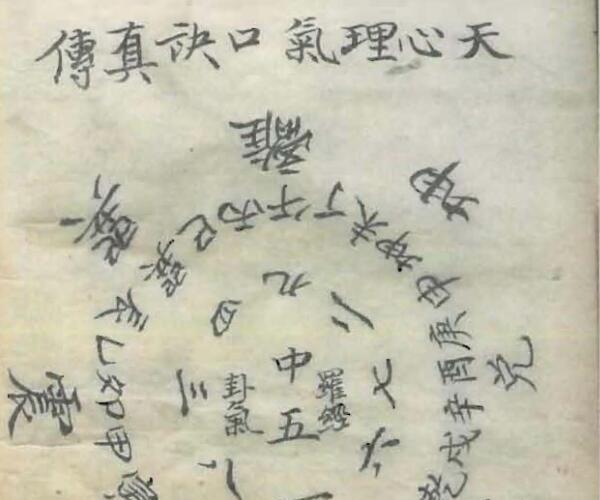 天心理氣口訣真傳
離
巽
坤
震
兌
甲卯乙辰巽巳丙午丁未坤申庚酉辛戌
四
九
二
三
七
六
羅經
中五
卦氣